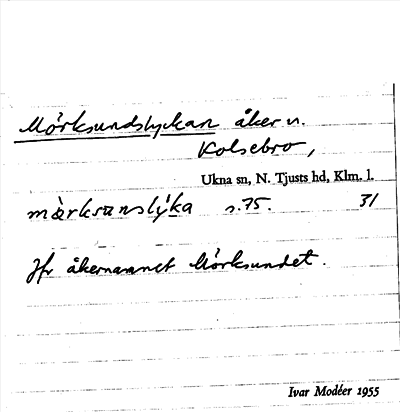 Mörksundslyckan åker u.
Kolsebro,
Ukna sn, N. Tjusts hd, Klm. l.
mœ̀rksɷnslýka s.75. 31
Jfr åkernamnet Mörksundet.
Ivar Modéer 1955